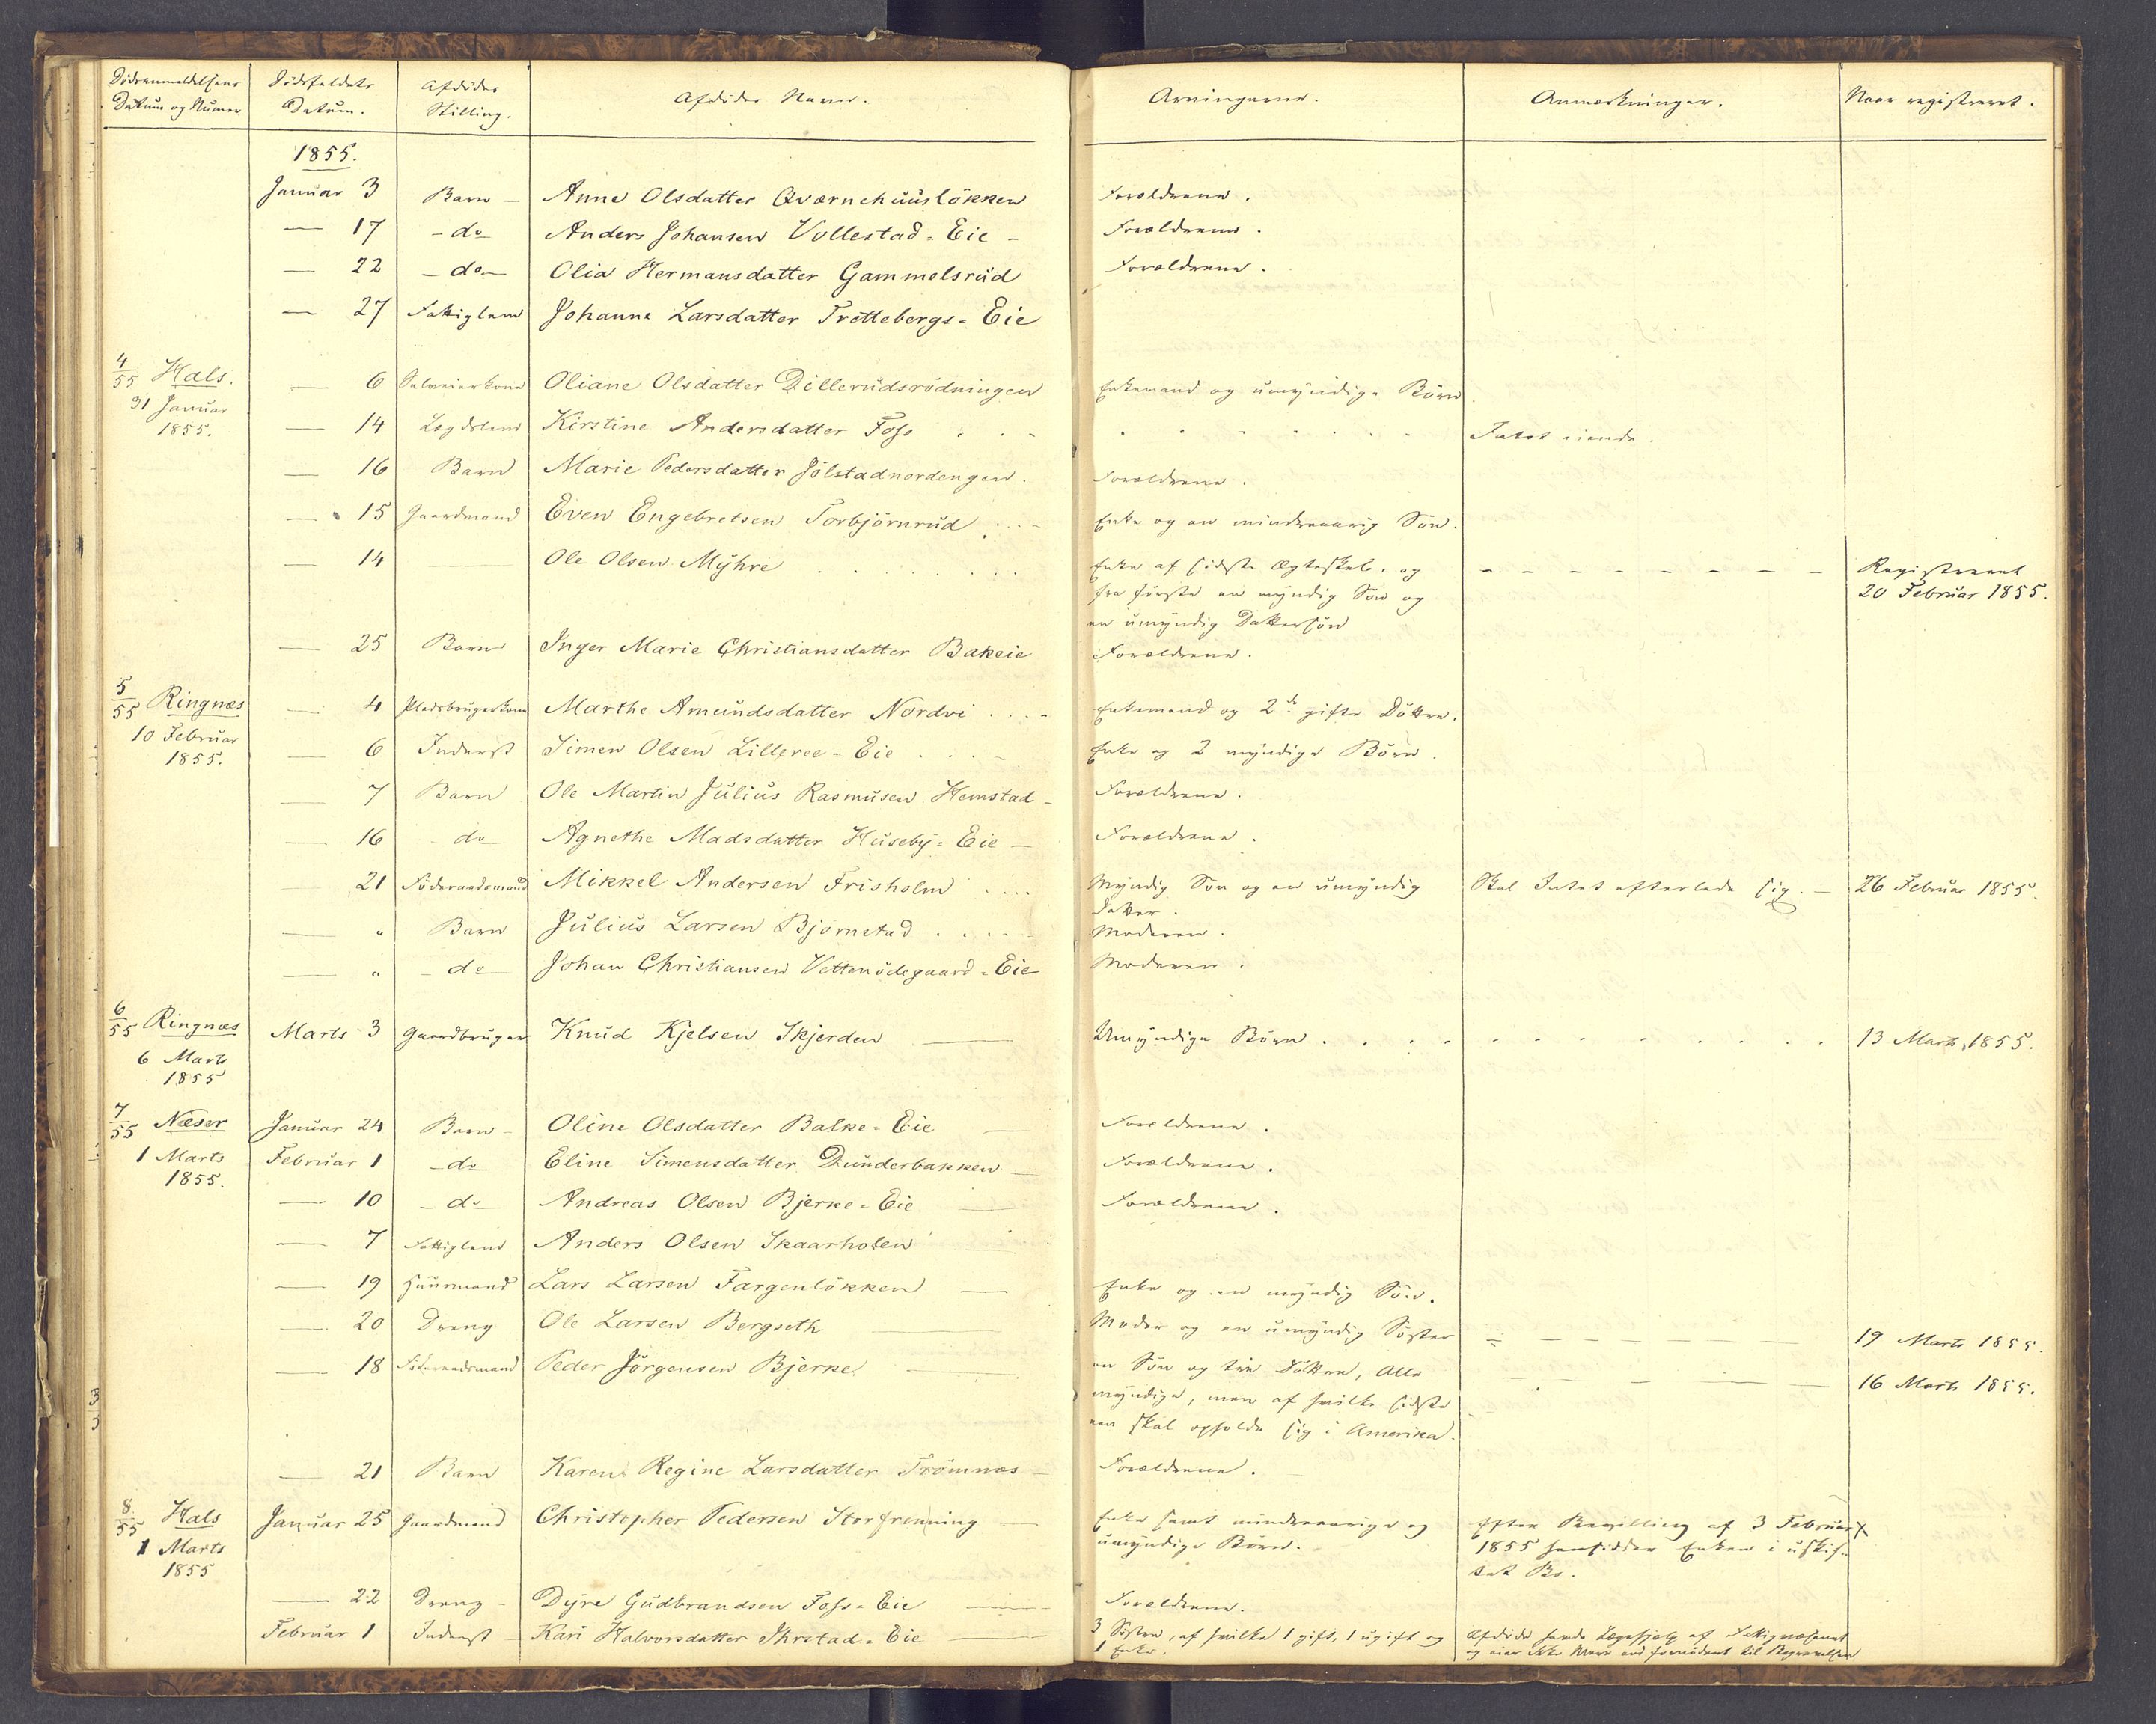 Dödsanmeldelsens Datum og Numer | Dödsfaldets Datum. | Afdödes Stilling. | Afdödes Navn. | Arvingerne. | Anmærkninger. | Naar registreret.
1855.
Januar 3 | Barn – | Anne Olsdatter Qværnehuuslökken | Forældrene.
— 17 | – do | Anders Johansen Vollestad = Eie – | Forældrene.
— 22 | – do – | Olia Hermansdatter Gammelsrud | Forældrene.
— 27 | Fattiglem | Johanne Larsdatter Trettebergs = Eie
4/55 Hals. | — 6 | Selveierkone | Oliane Olsdatter Dillerudsrödningen | Enkemand og umyndige Börn
31 Januar
1855. | — 14 | Lægdslem | Kirstine Andersdatter Foss | Intet eiende.
— 16 | Barn | Marie Pedersdatter Jölstadnordengen. | Forældrene.
— 15 | Gaardmand | Even Engebretsen Torbjörnrud | Enke og en mindreaarig Sön.
— 14 | Ole Olsen Myhre | Enke af sidste Ægteskab, og | Registreret
fra förste en myndig Sön og | 20 Februar 1855.
en umyndig Dattersön
— 25 | Barn | Inger Marie Christiansdatter Bakeie | Forældrene.
5/55 Ringnæs | — 4 | Pladsbrugerkone | Marthe Amundsdatter Nordvi | Enkemand og 2de gifte Döttre.
10 Februar
1855. | — 6 | Inderst | Simen Olsen Lilleree = Eie | Enke og 2 myndige Börn.
— 7 | Barn | Ole Martin Julius Rasmusen Hemstad – | Forældrene.
— 16 | do | Agnethe Madsdatter Huseby = Eie – | Forældrene.
— 21 | Föderaadsmand | Mikkel Andersen Frisholm | Myndig Sön og en umyndig | Skal Intet efterlade sig. – | 26 Februar 1855.
Datter.
— " | Barn | Julius Larsen Bjornstad | Moderen.
— " | – do | Johan Christiansen Vettenödegaard = Eie | Moderen.
6/55 Ringnæs | Marts 3 | Gaardbruger | Knud Kjelsen Skjerden — | Umyndige Börn | 13 Marts 1855.
6 Marts
1855
7/55 Næser | Januar 24 | Barn – | Oline Olsdatter Balke = Eie — | Forældrene.
1 Marts | Februar 1 | – do | Eline Simensdatter Dunderbakken – | Forældrene.
1855.
— 10 | – do | Andreas Olsen Bjerke = Eie — | Forældrene.
— 7 | Fattiglem | Anders Olsen Skaarholen —
— 19 | Huusmand | Lars Larsen Fargenlökken — | Enke og en myndig Sön.
— 20 | Dreng | Ole Larsen Bergseth — | Moder og en umyndig Söster | 19 Marts 1855.
— 18 | Föderaadsmand | Peder Jörgensen Bjerke — | en Sön og tre Döttre, Alle | 16 Marts 1855.
myndige, men af hvilke sidste
een skal opholde sig i Amerika.
— 21 | Barn | Karen Regine Larsdatter Trömnæs – | Forældrene.
8/55 Hals | Januar 25 | Gaardmand | Christopher Pedersen Storfrenning — | Enke samt mindreaarige og | Efter Bevilling af 3 Februar
1 Marts | umyndige Börn. | 1855 hensidder Enken i uskif-
1855 | tet Bo.
— 22 | Dreng – | Dyre Gudbrandsen Foss = Eie — | Forældrene.
Februar 1 | Inderst – | Kari Halvorsdatter Ihrstad = Eie — | 3 Söstre, af hvilke 1 gift, 1 ugift og | Afdöde havde Lægehjælp af Fattigvæsenet
1 Enke. | og eier ikke mere end fornödent til Begravelsen